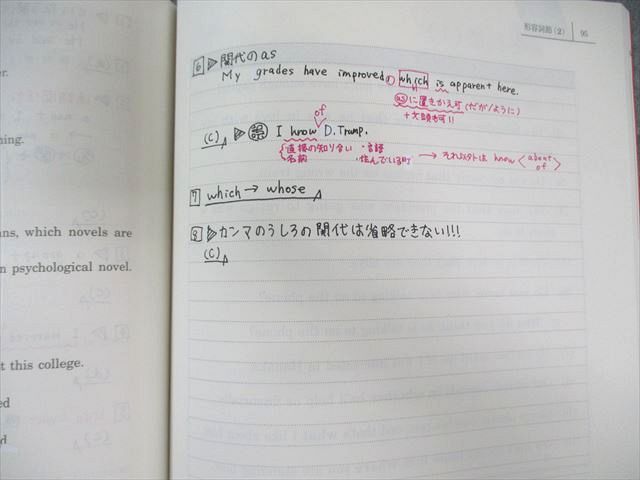 形容詞節(2) 95
6 ▷関代のas
My grades have improved, which is apparent here.
asに置きかえ可(だが/ように)
+文頭も可!!
of
(C) ▷ I know D. Trump.
直接の知り合い ・言語
名前 ・住んでいる町 → それ以外は know about
of
7 which → whose
8 ▷カンマのうしろの関代は省略できない!!!
(C)
er.
ning.
ns, which novels are
n psychological novel.
t this college.
ed
d